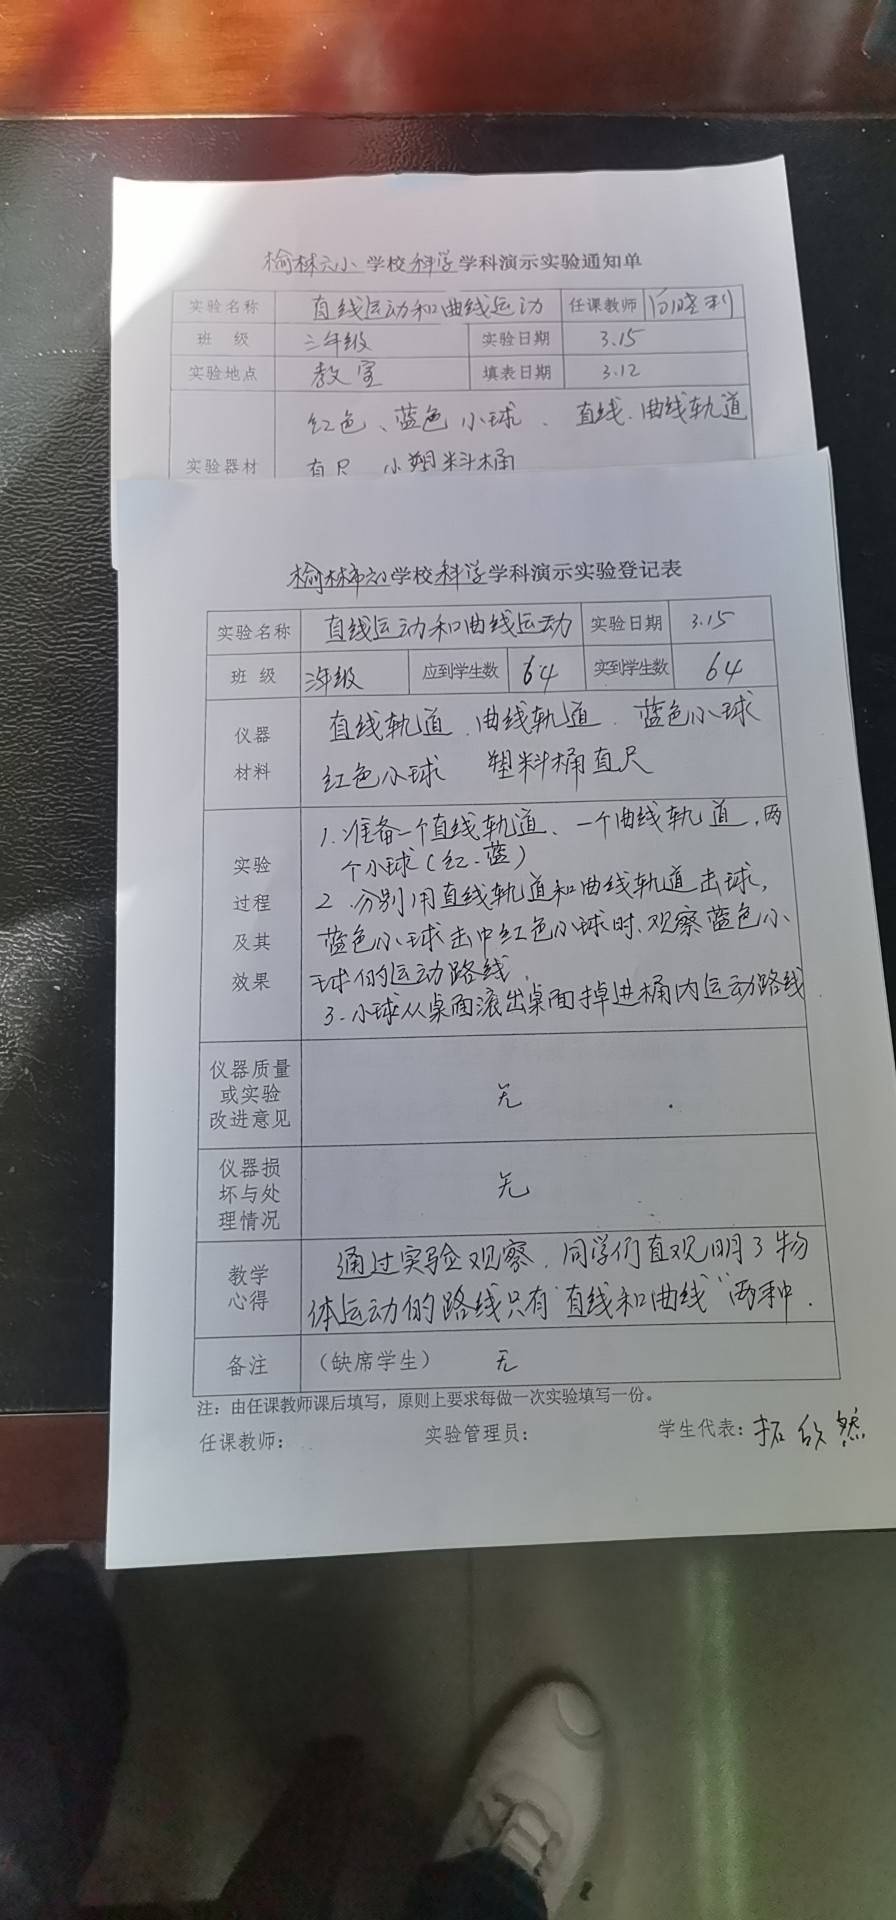 榆林六小学校科学学科演示实验通知单
实验名称 直线运动和曲线运动 任课教师 白晓利
班 级 三年级 实验日期 3.15
实验地点 教室 填表日期 3.12
红色、蓝色小球、直线、曲线轨道
实验器材 直尺 小塑料桶
榆林市六小学校科学学科演示实验登记表
实验名称 直线运动和曲线运动 实验日期 3.15
班 级 三年级 应到学生数 64 实到学生数 64
仪器 直线轨道、曲线轨道、蓝色小球
材料 红色小球 塑料桶直尺
1.准备一个直线轨道、一个曲线轨道,两
实验 个小球(红、蓝)
过程 2.分别用直线轨道和曲线轨道击球,
及其 蓝色小球击中红色小球时、观察蓝色小
效果 球的运动路线.
3.小球从桌面滚出桌面掉进桶内运动路线
仪器质量
或实验 无
改进意见
仪器损
坏与处 无
理情况
教学 通过实验观察.同学们直观明了物
心得 体运动的路线只有"直线和曲线"两种.
备注 (缺席学生) 无
注:由任课教师课后填写,原则上要求每做一次实验填写一份。
任课教师: 实验管理员: 学生代表:拓欣然